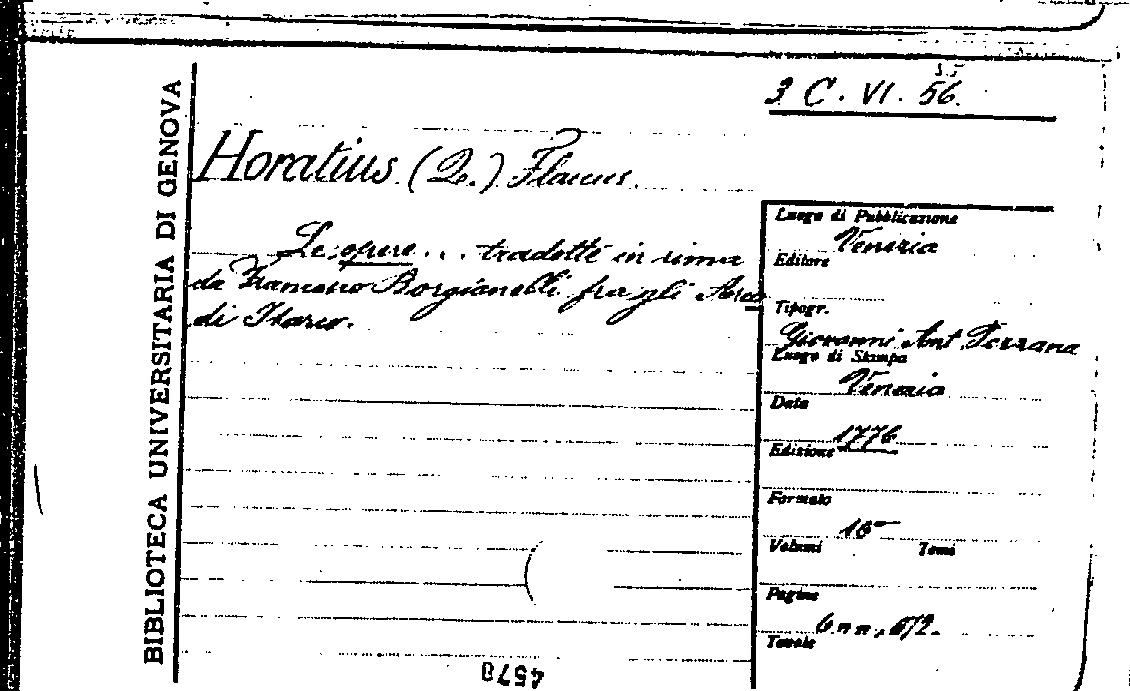 3 C. VI. 56.
BIBLIOTECA UNIVERSITARIA DI GENOVA
Horatius (Q.) Flaccus.
Le opere... tradotte in rima
da Francesco Borgianelli fra gli Arca
di Itarco.
Luogo di Pubblicazione
Venezia
Editore
Tipogr.
Giovanni Ant
Luogo di Stampa
Venezia
Data
1776
Edizione
Formato
16°
Volumi Tomi
Pagine
6 n n, 672.
Tavole
4578